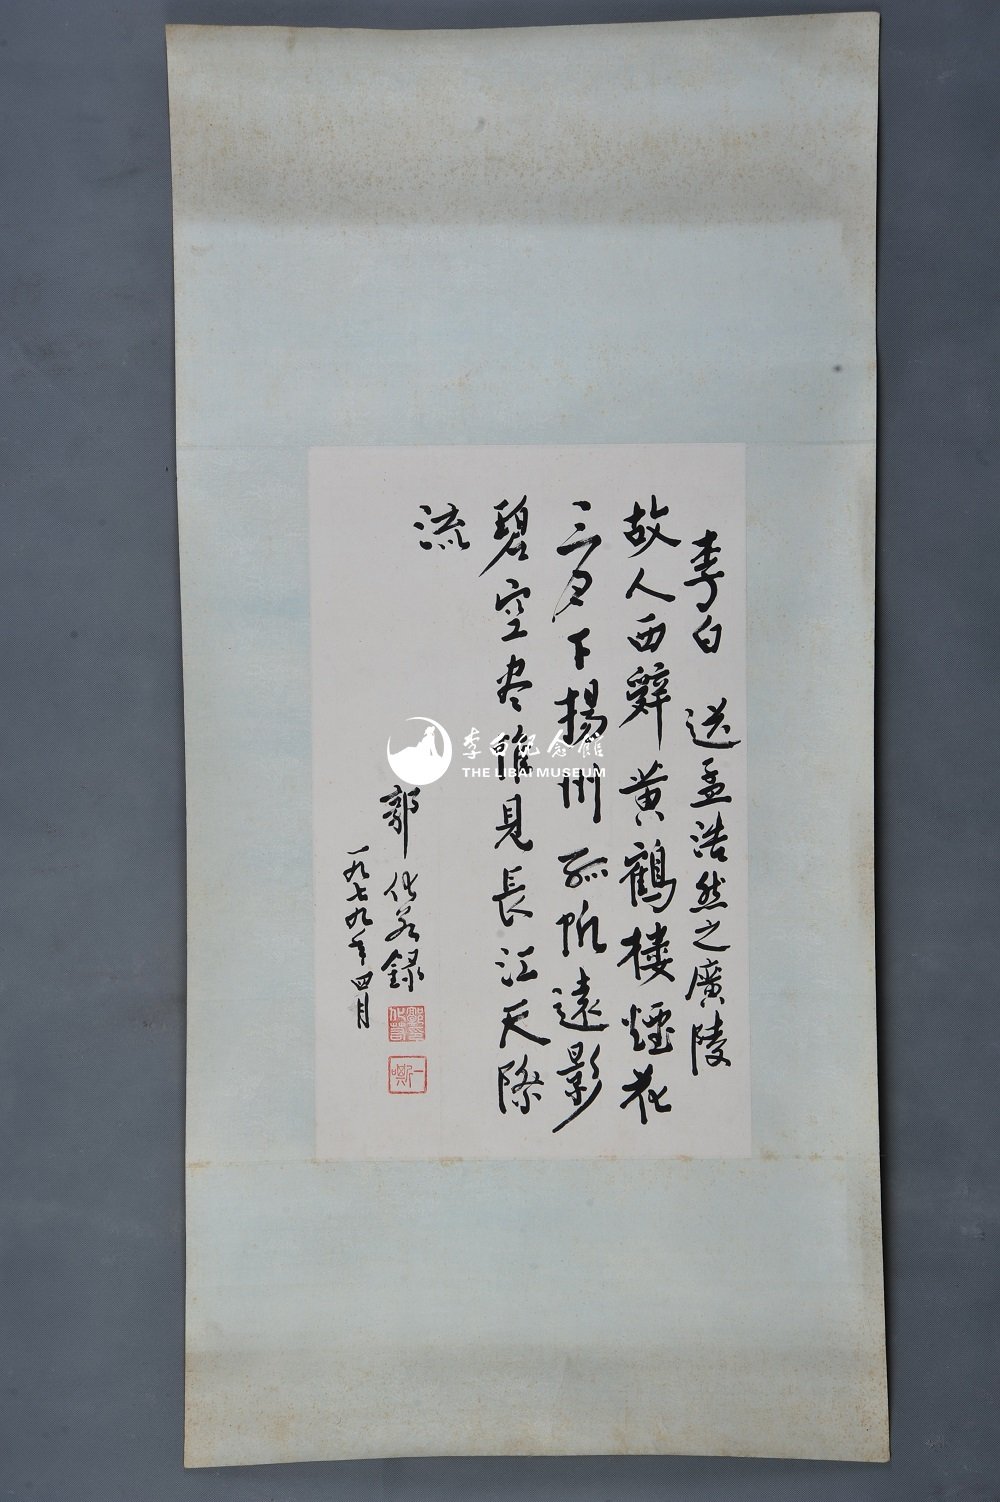 李白 送孟浩然之廣陵
故人西辤黄鶴楼煙花
三月下揚州孤帆遠影
碧空尽惟見長江天際
流
郭化若録
一九七九年四月
李白纪念馆
THE LIBAI MUSEUM